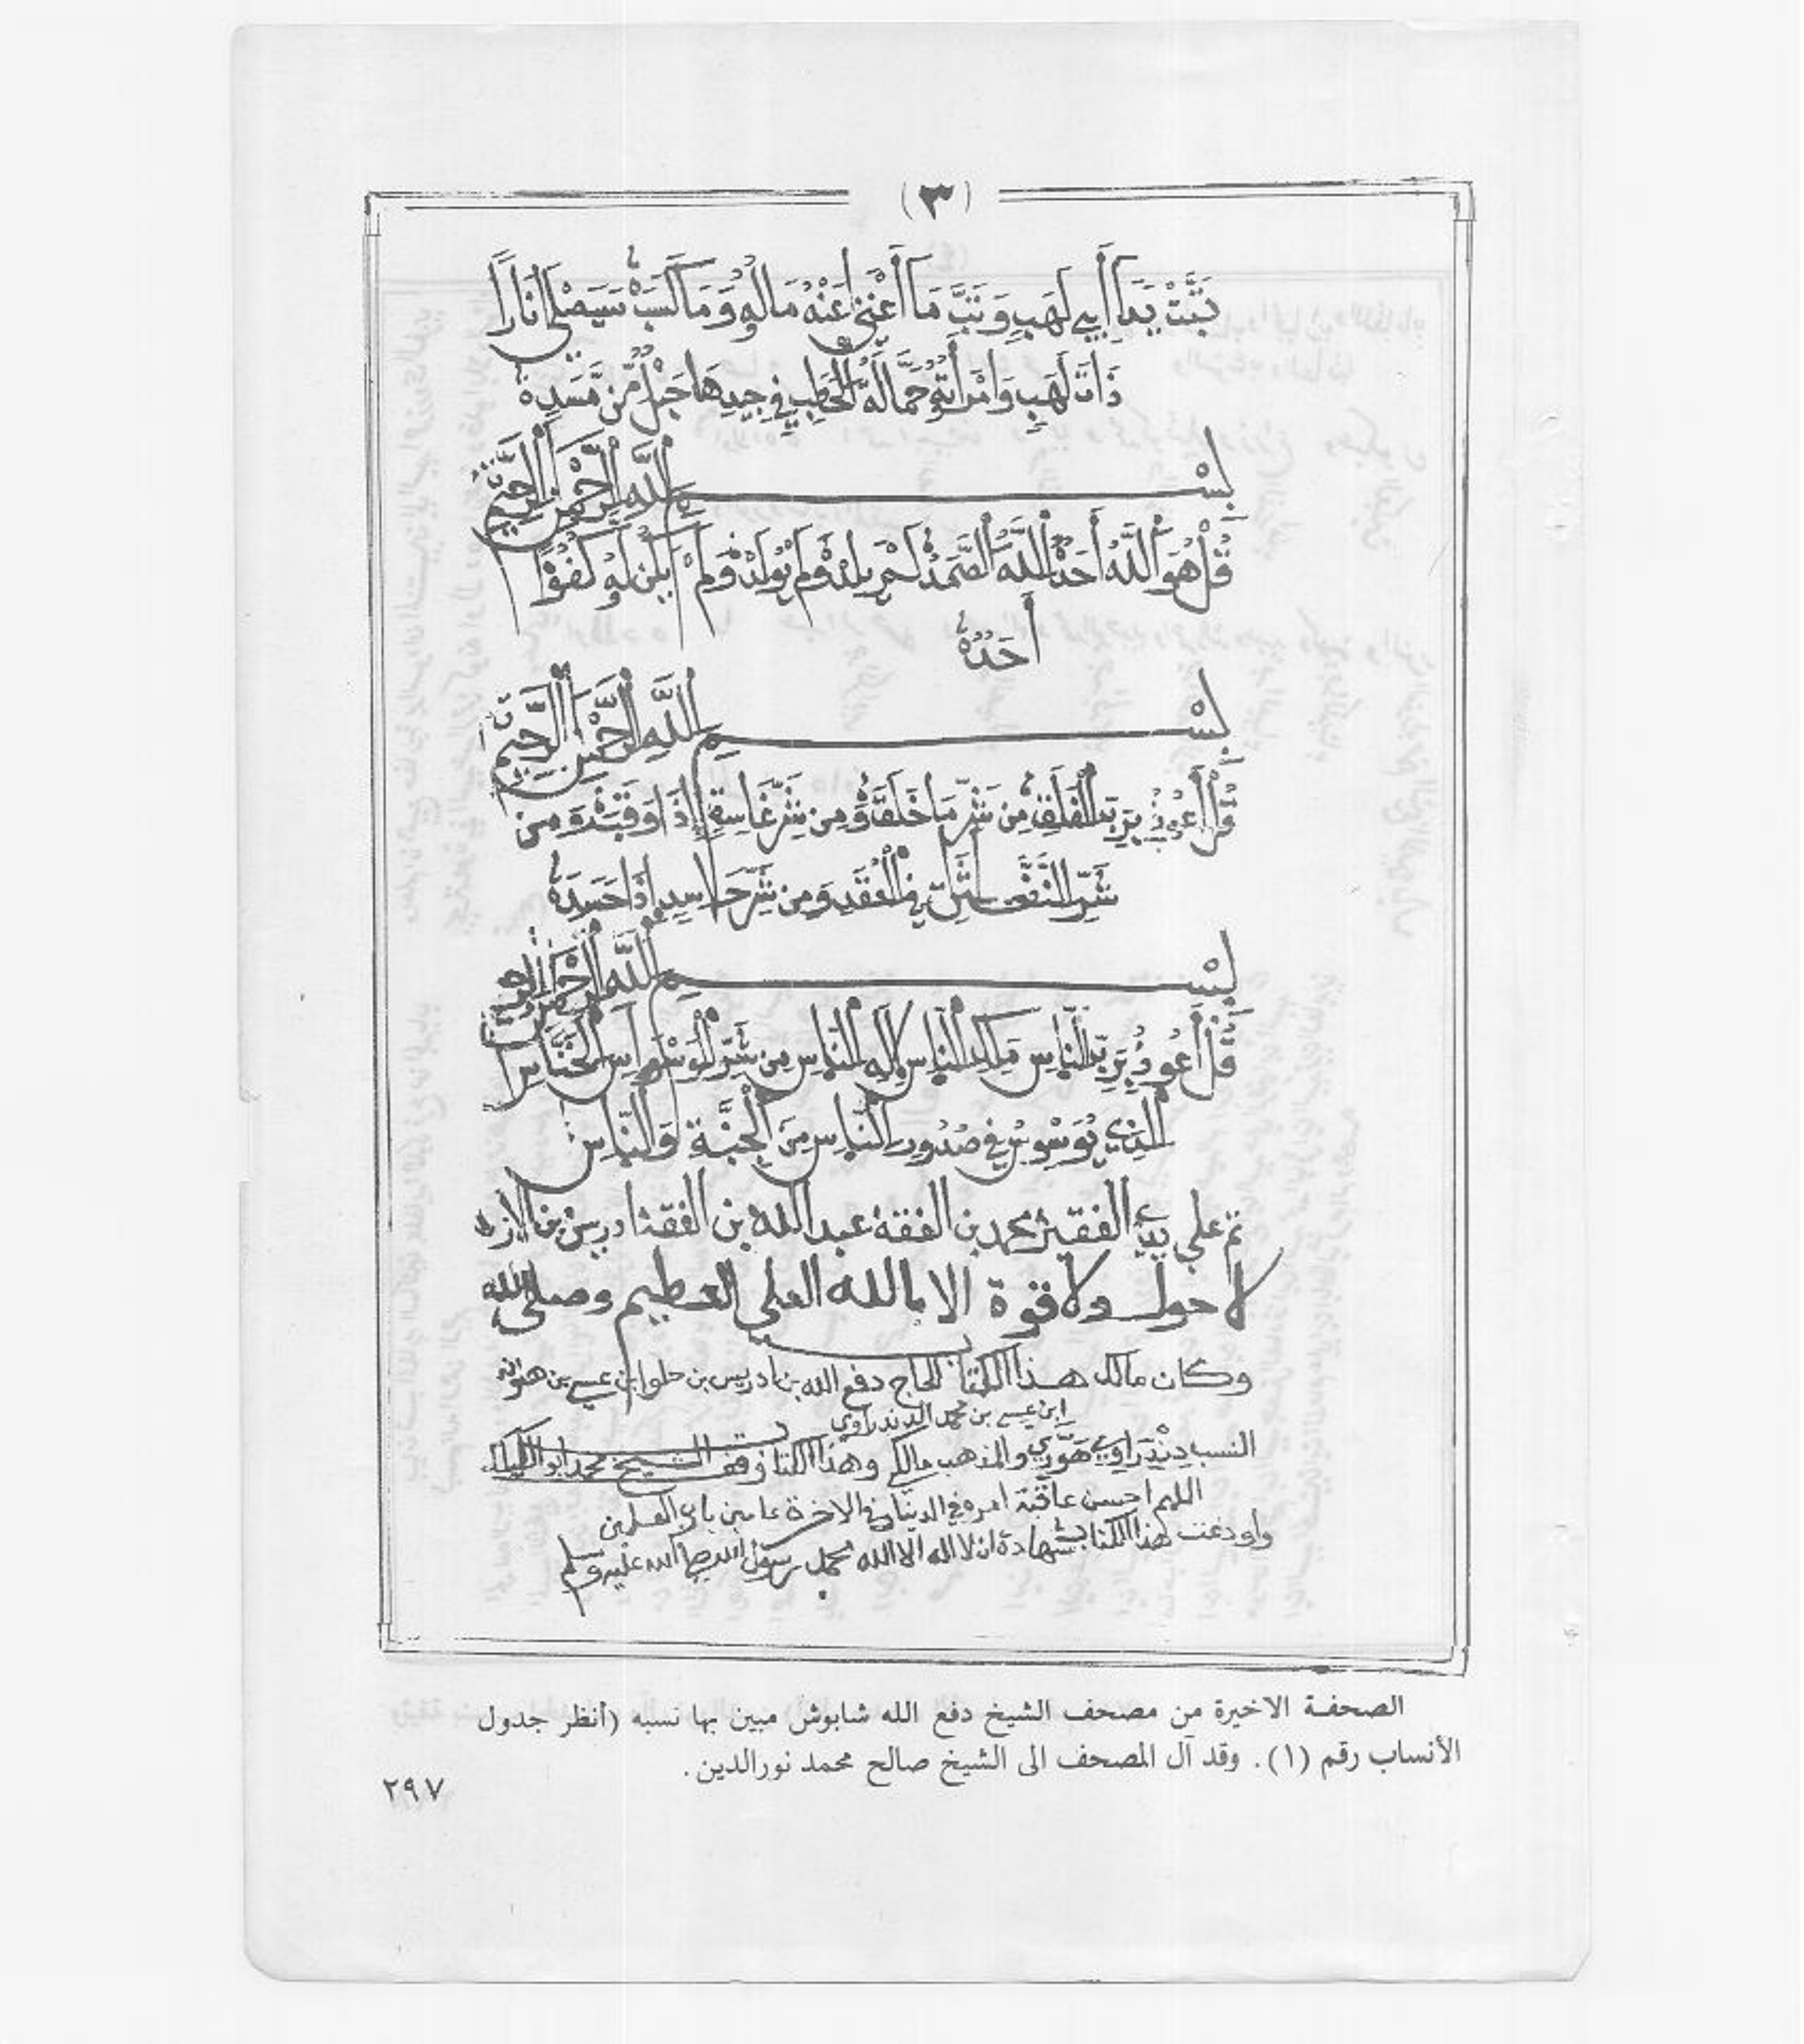 (٣)
تَبَّتْ يَدَا أَبِي لَهَبٍ وَتَبَّ مَا أَغْنَى عَنْهُ مَالُهُ وَمَا كَسَبَ سَيَصْلَى نَارًا
ذَاتَ لَهَبٍ وَامْرَأَتُهُ حَمَّالَةُ الْحَطَبِ فِي جِيدِهَا حَبْلٌ مِّن مَّسَدٍ
بِسْمِ اللَّهِ الرَّحْمَنِ الرَّحِيمِ
قُلْ هُوَ اللَّهُ أَحَدٌ اللَّهُ الصَّمَدُ لَمْ يَلِدْ وَلَمْ يُولَدْ وَلَمْ يَكُن لَهُ كُفُوًا
أَحَدٌ
بِسْمِ اللَّهِ الرَّحْمَنِ الرَّحِيمِ
قُلْ أَعُوذُ بِرَبِّ الْفَلَقِ مِن شَرِّ مَا خَلَقَ وَمِن شَرِّ غَاسِقٍ إِذَا وَقَبَ وَمِن
شَرِّ النَّفَّثَتِ فِي الْعُقَدِ وَمِن شَرِّ حَاسِدٍ إِذَا حَسَدَ
بِسْمِ اللَّهِ الرَّحْمَنِ الرَّحِيمِ
قُلْ أَعُوذُ بِرَبِّ النَّاسِ مَلِكِ النَّاسِ إِلَهِ النَّاسِ مِن شَرِّ الْوَسْوَاسِ الْخَنَّاسِ
الَّذِي يُوَسْوِسُ فِي صُدُورِ النَّاسِ مِنَ الْجِنَّةِ وَالنَّاسِ
تم على يد الفقير محمد بن الفقه عبد الله بن الفقه ادريس بن
لا حول ولا قوة الا بالله العلي العظيم وصلى الله
وكان مالك هذا الكتاب الحاج دفع الله بن ادريس بن حلوا بن عيسى بن
ابن عيسى بن محمد الدندراوي
النسب دِنْدِرَاوِي هَوَّرِي والمذهب مالكي وهذا الكتاب وقف الشيخ محمد ابو
اللهم احسن عاقبة امره في الدنيا وفي الاخرة ءامين يا رب العلمين
واودعت هذا الكتاب شهادة ان لا اله الا الله محمد رسول الله صلى الله عليه وسلم
الصحفة الاخيرة من مصحف الشيخ دفع الله شابوش مبين بها نسبه (أنظر جدول
الأنساب رقم (١). وقد آل المصحف الى الشيخ صالح محمد نورالدين.
٢٩٧